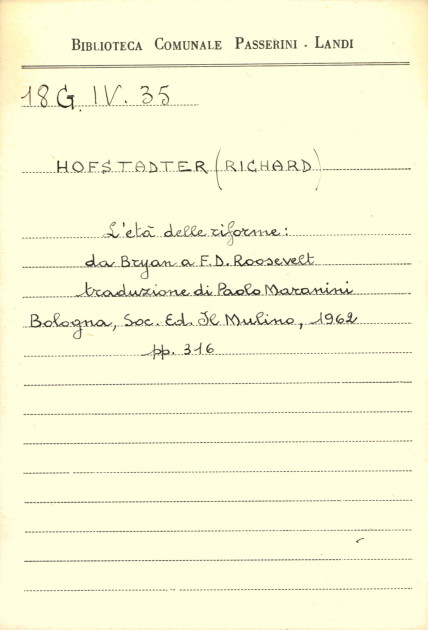 BIBLIOTECA COMUNALE PASSERINI - LANDI
18 G. IV. 35
HOFSTADTER (RICHARD)
L'età delle riforme:
da Bryan a F.D. Roosevelt
traduzione di Paolo Maranini
Bologna, Soc. Ed. Il Mulino, 1962
pp. 316